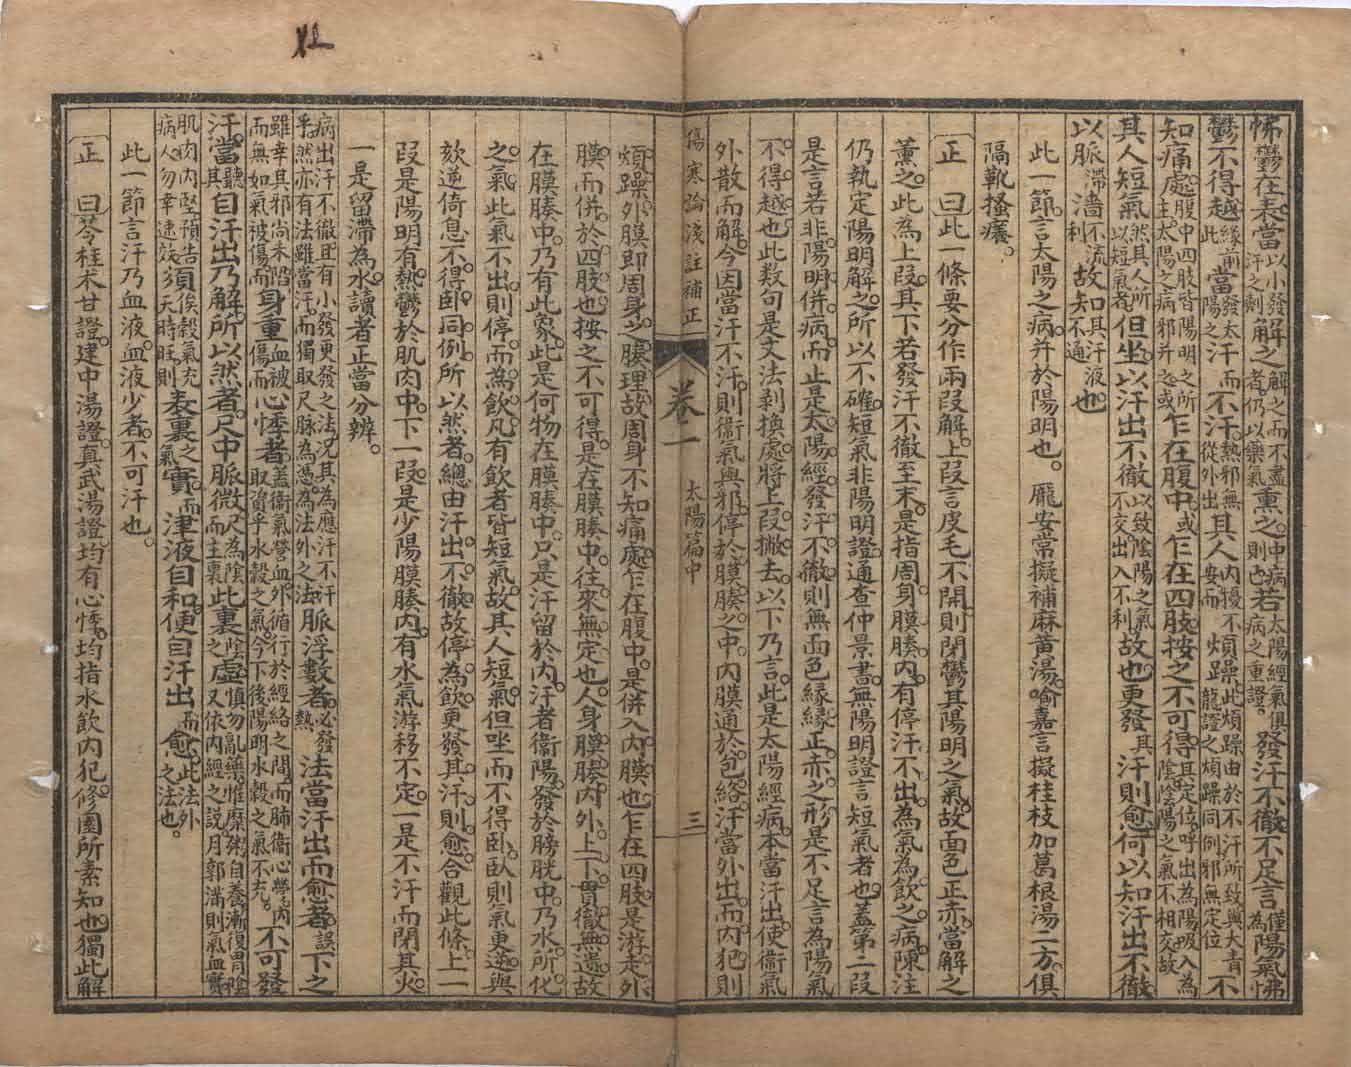 怫鬱在表當以小發汗之劑解之解之而不盡者仍以藥氣熏之中病則已若太陽經氣俱病之重證發汗不徹不足言僅為陽氣怫
鬱不得越緣前此當發太陽之汗而不汗熱邪無從外出其人內擾不安而煩躁此煩躁由於不汗所致與大青龍證之煩躁同例邪無定位不
知痛處主太陽之病邪并或乍在腹中或乍在四肢按之不可得其定位呼出為陽吸入為陰陰陽之氣不相交故
其人短氣然其人所以短氣者但坐以汗出不徹以致陰陽之氣不交出入不利故也更發其汗則愈何以知汗出不徹
以脈滯濇不流利故知其汗液不通也
此一節言太陽之病并於陽明也龐安常擬補麻黃湯喻嘉言擬桂枝加葛根湯二方俱
隔靴搔癢
正曰此一條要分作兩段解上段言皮毛不開則閉鬱其陽明之氣故面色正赤當解之
薰之此為上段其下若發汗不徹至末是指周身膜腠內有停汗不出為氣為飲之病陳注
仍執定陽明解之所以不確短氣非陽明證通查仲景書無陽明證言短氣者也蓋第二段
是言若非陽明併病而止是太陽經發汗不徹則無面色緣緣正赤之形是不足言為陽氣
不得越也此数句是文法剥換處將上段撇去以下乃言此是太陽經病本當汗出使衞氣
外散而解今因當汗不汗則衞氣與邪停於膜腠之中內膜通於包絡汗當外出而內犯則
傷寒論淺註補正 卷一 太陽篇中 三
煩躁外膜即周身之腠理故周身不知痛處乍在腹中是併入內膜也乍在四肢是游走外
膜而併於四肢也按之不可得是在膜腠中往來無定也人身膜腠內外上下貫徹無遺故
在膜腠中乃有此象此是何物在膜腠中只是汗留於內汗者衞陽發於膀胱中乃水所化
之氣此氣不出則停而為飲凡有飲者皆短氣故其人短氣但坐而不得卧卧則氣更逆與
欬逆倚息不得卧同例所以然者總由汗出不徹故停為飲更發其汗則愈合觀此條上一
段是陽明有熱鬱於肌肉中下一段是少陽膜腠內有水氣游移不定一是不汗而閉其火
一是留滯為水讀者正當分辨
病出汗不徹且有小發更發之法况其為應汗不汗乎然亦有法雖當汗而獨取尺脉為憑為法外之法脈浮數者必發熱法當汗出而愈若誤下之
雖幸其邪尚未陷而無如氣被傷而身重血被傷而心悸者蓋衞氣營血外循行於經絡之間而肺衞心營內取資乎水穀之氣今下後陽明水穀之氣不充不可發
汗當聽其自汗出乃解所以然者尺中脈微尺為陰而主裏此裏陰之虛慎勿亂藥惟糜粥自養漸復胃陰又依內經之說月郭滿則氣血實
肌肉內堅預告病人勿幸速效須俟穀氣充天時旺則表裏之氣實而津液自和便自汗出而愈此法外之法也
此一節言汗乃血液血液少者不可汗也
正曰苓桂术甘證建中湯證真武湯證均有心悸均指水飲內犯修園所素知也獨此解